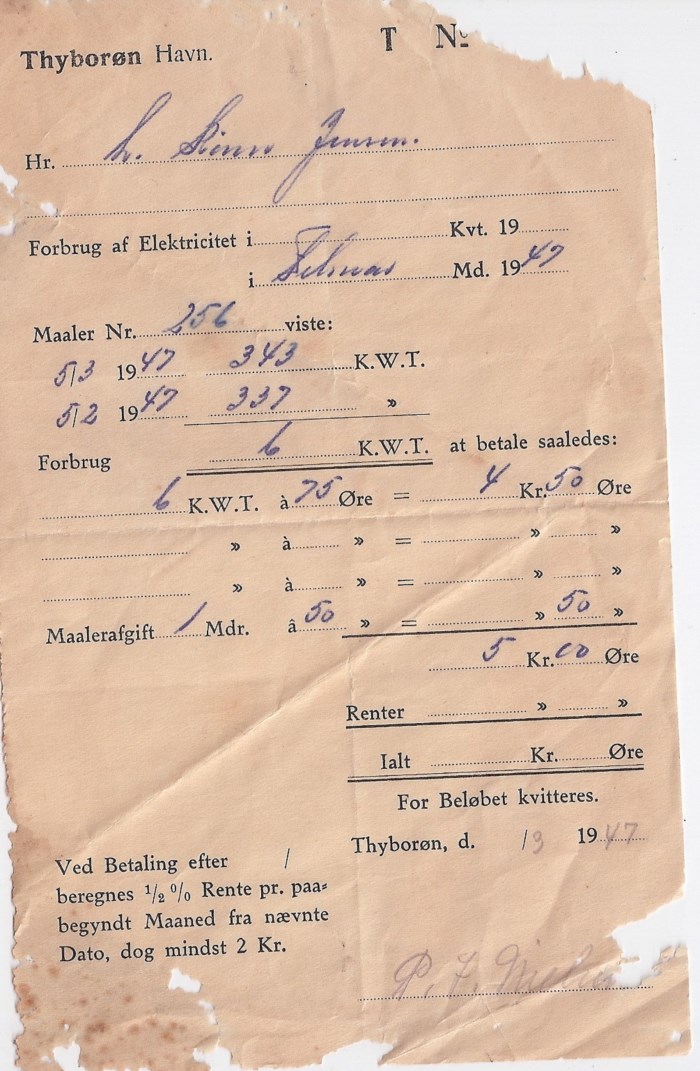 Thyborøn Havn. T No
Hr. Jensen.
Forbrug af Elektricitet i Kvt. 19
i Februar Md. 1947
Maaler Nr. 256 viste:
5/3 1947 343 K.W.T.
5/2 1947 337 »
Forbrug 6 K.W.T. at betale saaledes:
6 K.W.T. à 75 Øre = 4 Kr. 50 Øre
» à » = » »
» à » = » »
Maalerafgift 1 Mdr. â 50 » = » 50 »
5 Kr. 00 Øre
Renter » »
Ialt Kr. Øre
For Beløbet kvitteres.
Thyborøn, d. /3 1947
Ved Betaling efter /
beregnes 1/2 % Rente pr. paa=
begyndt Maaned fra nævnte
Dato, dog mindst 2 Kr.
P.